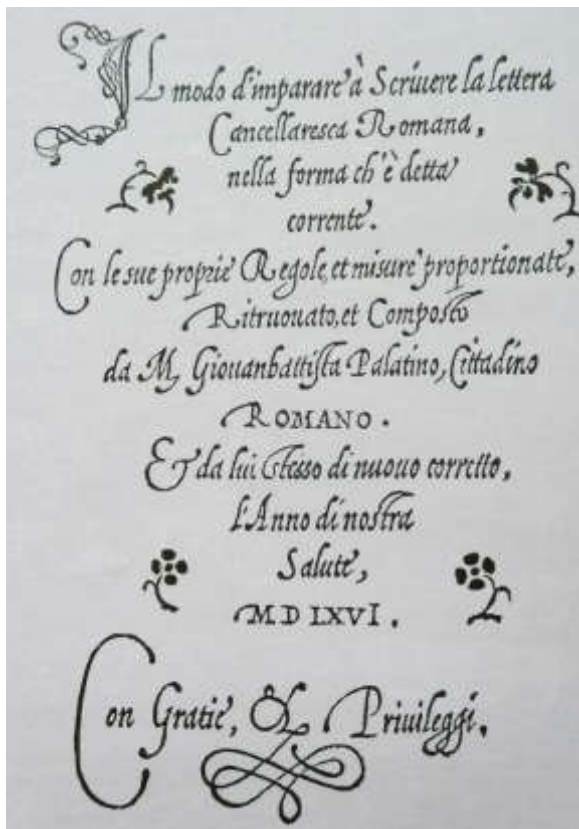 Il modo d'imparare à Scriuere la lettera
Cancellaresca Romana,
nella forma ch'è detta
corrente.
Con le sue proprie Regole, et misure proportionate,
Ritruouato, et Composto
da M. Giouanbattista Palatino, Cittadino
ROMANO.
Et da lui stesso di nuouo corretto,
l'Anno di nostra
Salute,
MDLXVI.
Con Gratie, & Priuileggi.